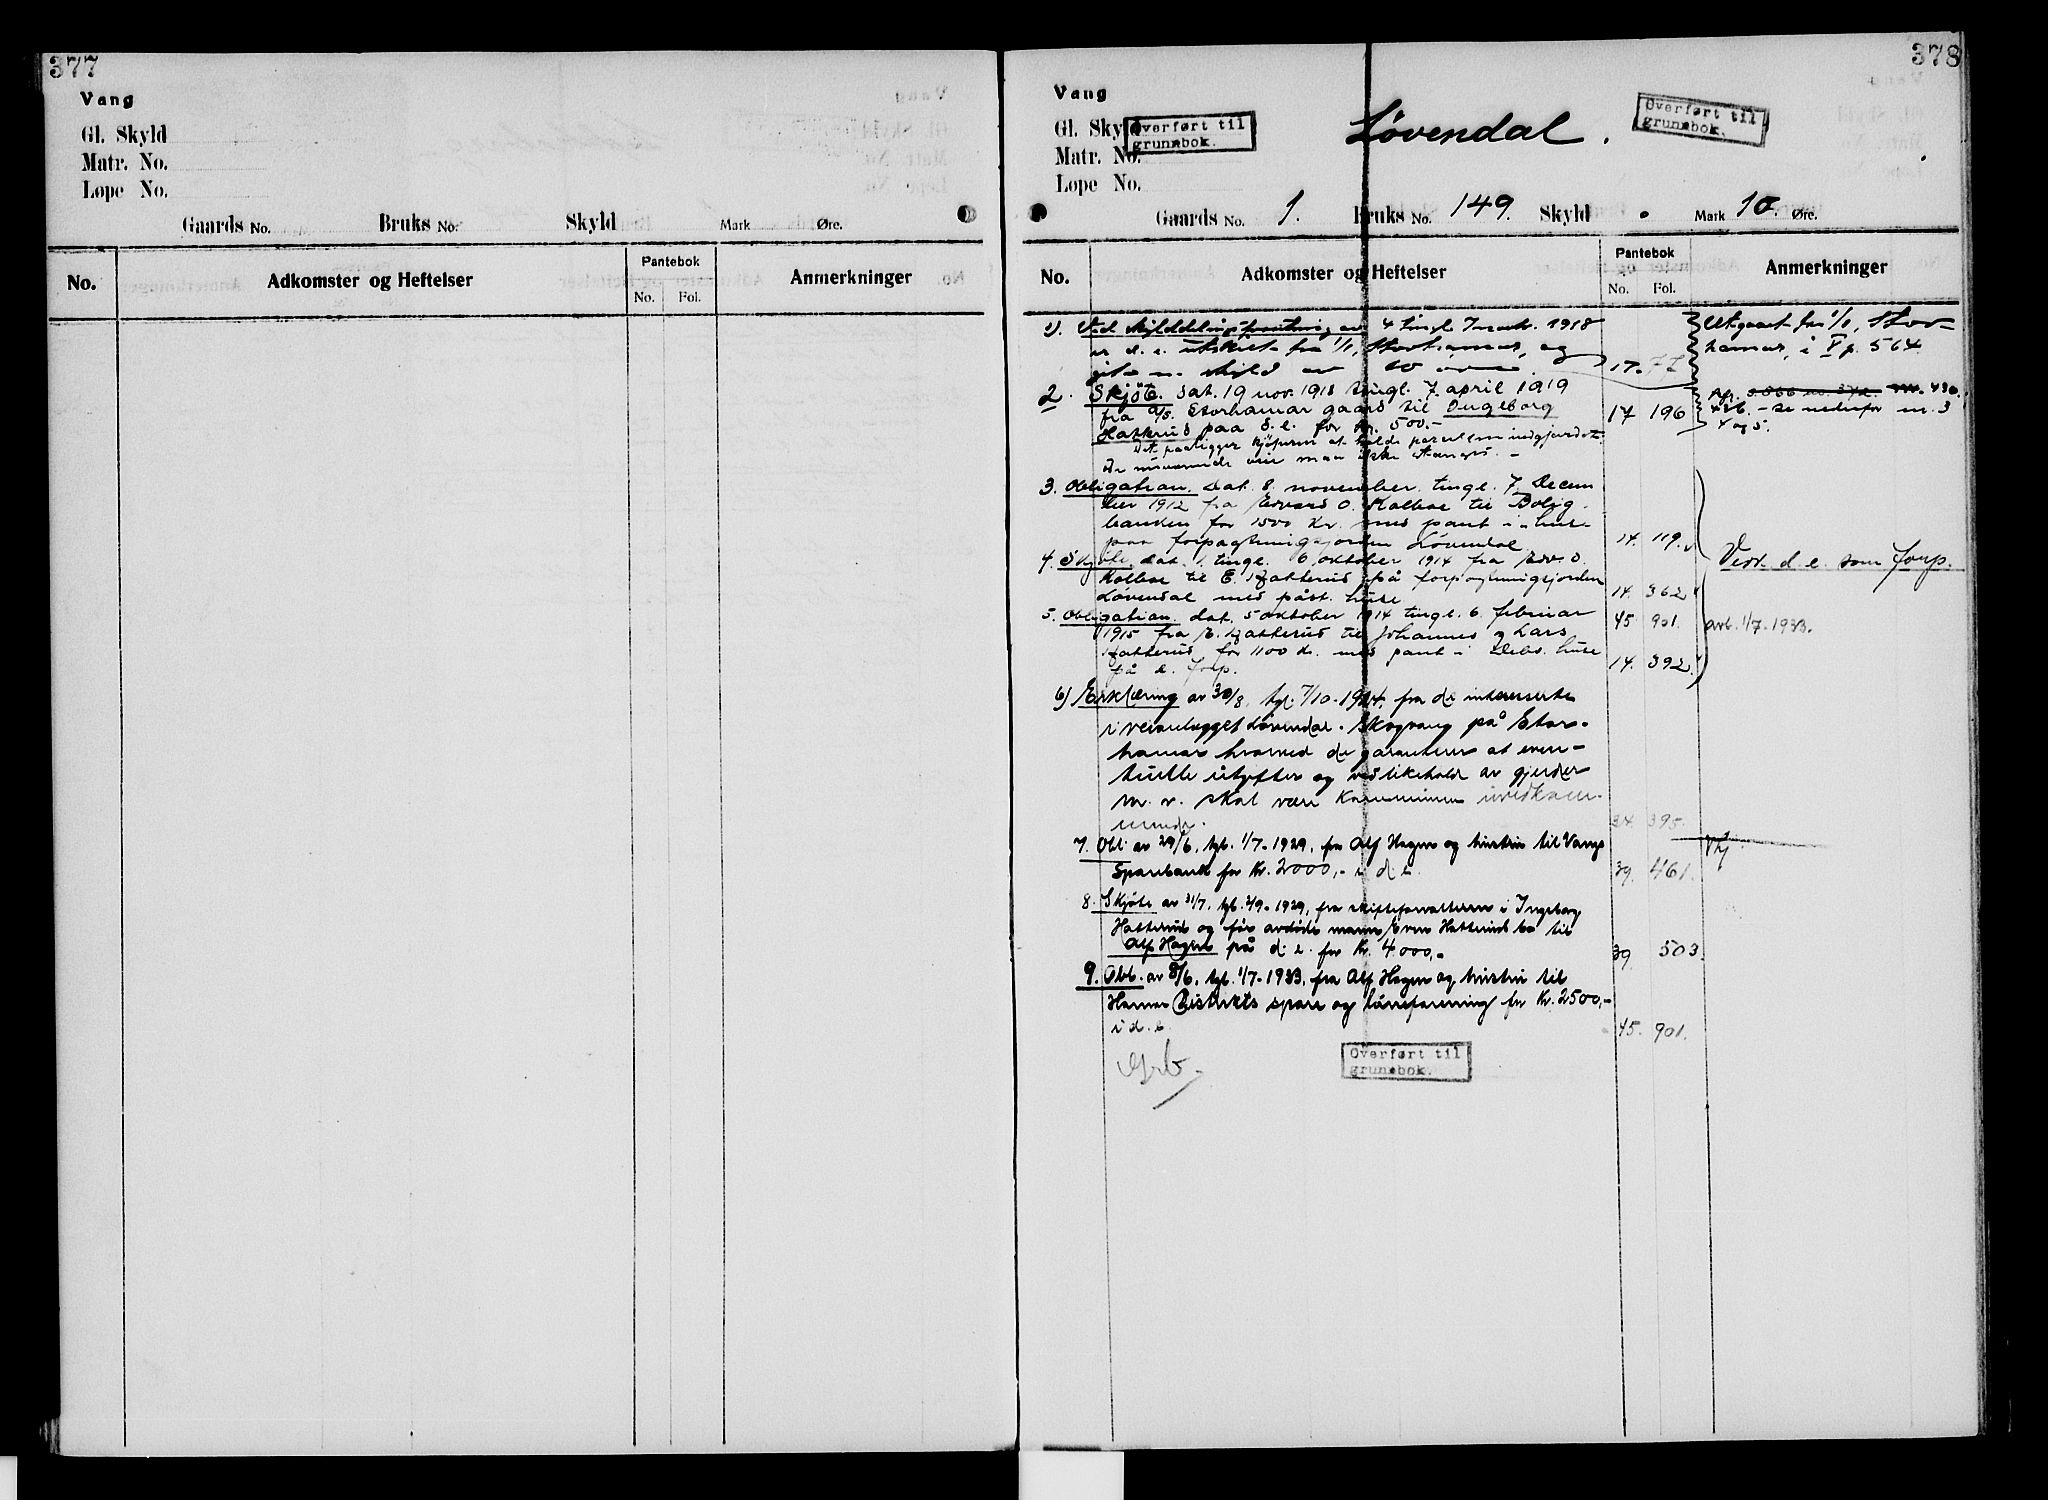 377
Vang
Gl. Skyld
Matr. No.
Løpe No.
Gaards No. Bruks No. Skyld Mark Øre.
No. Adkomster og Heftelser Pantebok Anmerkninger
No. Fol.
378
Vang
Gl. Skyld Overført til
grunnbok.
Løvendal.
Overført til
grunnbok.
Matr. No.
Løpe No.
Gaards No. 1. Bruks No. 149. Skyld . Mark 10. Øre.
No. Adkomster og Heftelser Pantebok Anmerkninger
No. Fol.
1). Ved skylddelingsforretning av 4 tingl. 7 1918
er d. e. utskilt fra 1/1, Storhamar, og
gitt en skyld av 10 øre. 17. 77
Utgaaet fra 1/1, Stor-
hamar, i V p. 564.
2. Skjöte. dat. 19 nov. 1918 tingl. 7. april 1919
fra A/S. Storhamar gaard til Ingeborg
Hatterud paa d. e. for Kr. 500.- 17 196
Det paaligger kjöperen at holde parcellen indgjerdet.
De nuværende veie maa ikke stænges. -
436. - se nedenfor nr. 3
4 og 5.
3. Obligation. Dat. 8. november tingl. 7. Decem
ber 1912 fra Edvard O. Kolbu til Bolig-
banken for 1500 Kr. med pant i huse
paa forpagtningsjorden Løvendal 14. 119.
4. Skjöte. dat. 1. tingl. 6 oktober 1914 fra Edv. O.
Kolbu til E. Hatterud på forpagtningsjorden
Løvendal med påst. huse 14. 362
5. Obligation. dat. 5 oktober 1914 tingl. 6. februar
1915 fra E. Hatterud til Johannes og Lars
Hatterud, for 1100 Kr. med pant i Debs. huse
på d. forp. 14. 392.
Vedr. d. e. som forp.
45 901. avl. 1/7-1933.
6) Erklæring av 30/8, tgl. 7/10-1924, fra de interesserte
i veianlegget Løvendal - Skogvang på Stor-
hamar hvorved de garanterer at even-
tuelle utgifter og vedlikehold av gjerder
m. v. skal være kommunen uvedkom-
mende. 34. 395.
7. Obl. av 29/6, tgl. 1/7-1929, fra Alf Hagen og hustru til Vang
Sparebank for Kr. 2000,- i d. e. 39. 461.
8. Skjöte av 31/7, tgl. 2/9-1929, fra skifteforvalteren i Ingeborg
Hatterud og för avdöde mann Even Hatterud bo til
Alf Hagen på d. e. for Kr. 4000,- 39. 503.
9. Obl. av 8/6, tgl. 1/7-1933, fra Alf Hagen og hustru til
Hamar Distrikts spare og låneforening for Kr. 2500,-
i d. e. 45. 901.
Grb.
Overført til
grunnbok.